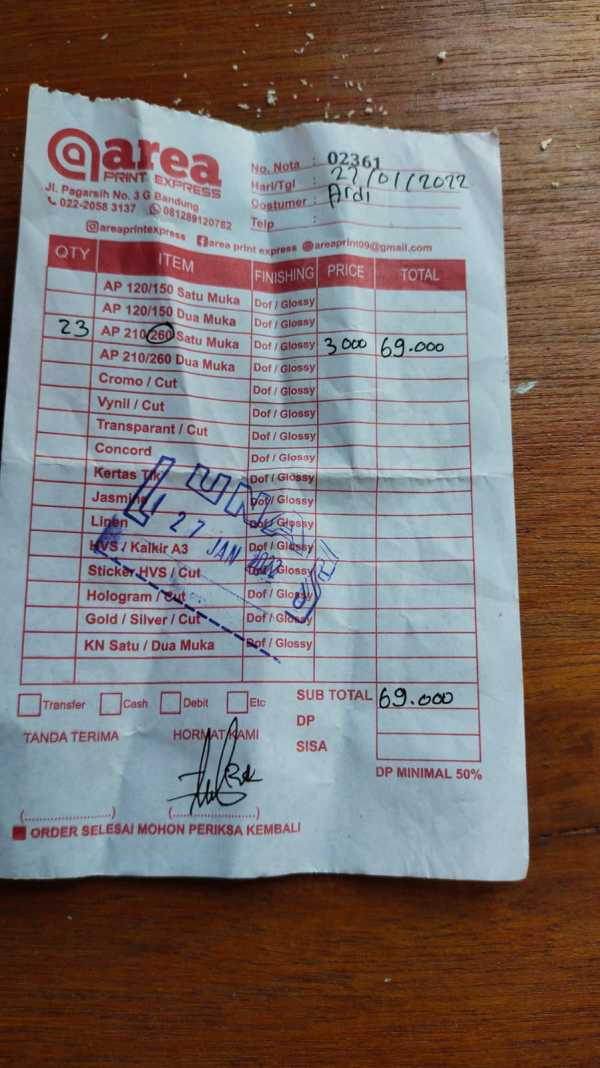 area
PRINT EXPRESS
Jl. Pagarsih No. 3 G Bandung
022-2058 3137 081289120782
areaprintexpress area print express areaprint09@gmail.com
No. Nota : 02361
Hari/Tgl : 27/01/2022
Costumer : Ardi
Telp :
QTY ITEM FINISHING PRICE TOTAL
AP 120/150 Satu Muka Dof / Glossy
AP 120/150 Dua Muka Dof / Glossy
23 AP 210/260 Satu Muka Dof / Glossy 3000 69.000
AP 210/260 Dua Muka Dof / Glossy
Cromo / Cut Dof / Glossy
Vynil / Cut Dof / Glossy
Transparant / Cut Dof / Glossy
Concord Dof / Glossy
Kertas Tik Dof / Glossy
Jasmine Dof / Glossy
Linen Dof / Glossy
HVS / Kalkir A3 Dof / Glossy
Sticker HVS / Cut Dof / Glossy
Hologram / Cut Dof / Glossy
Gold / Silver / Cut Dof / Glossy
KN Satu / Dua Muka Dof / Glossy
LUNAS
27 JAN 2022
Transfer Cash Debit Etc
SUB TOTAL 69.000
DP
SISA
DP MINIMAL 50%
TANDA TERIMA HORMAT KAMI
(........................) (........................)
ORDER SELESAI MOHON PERIKSA KEMBALI